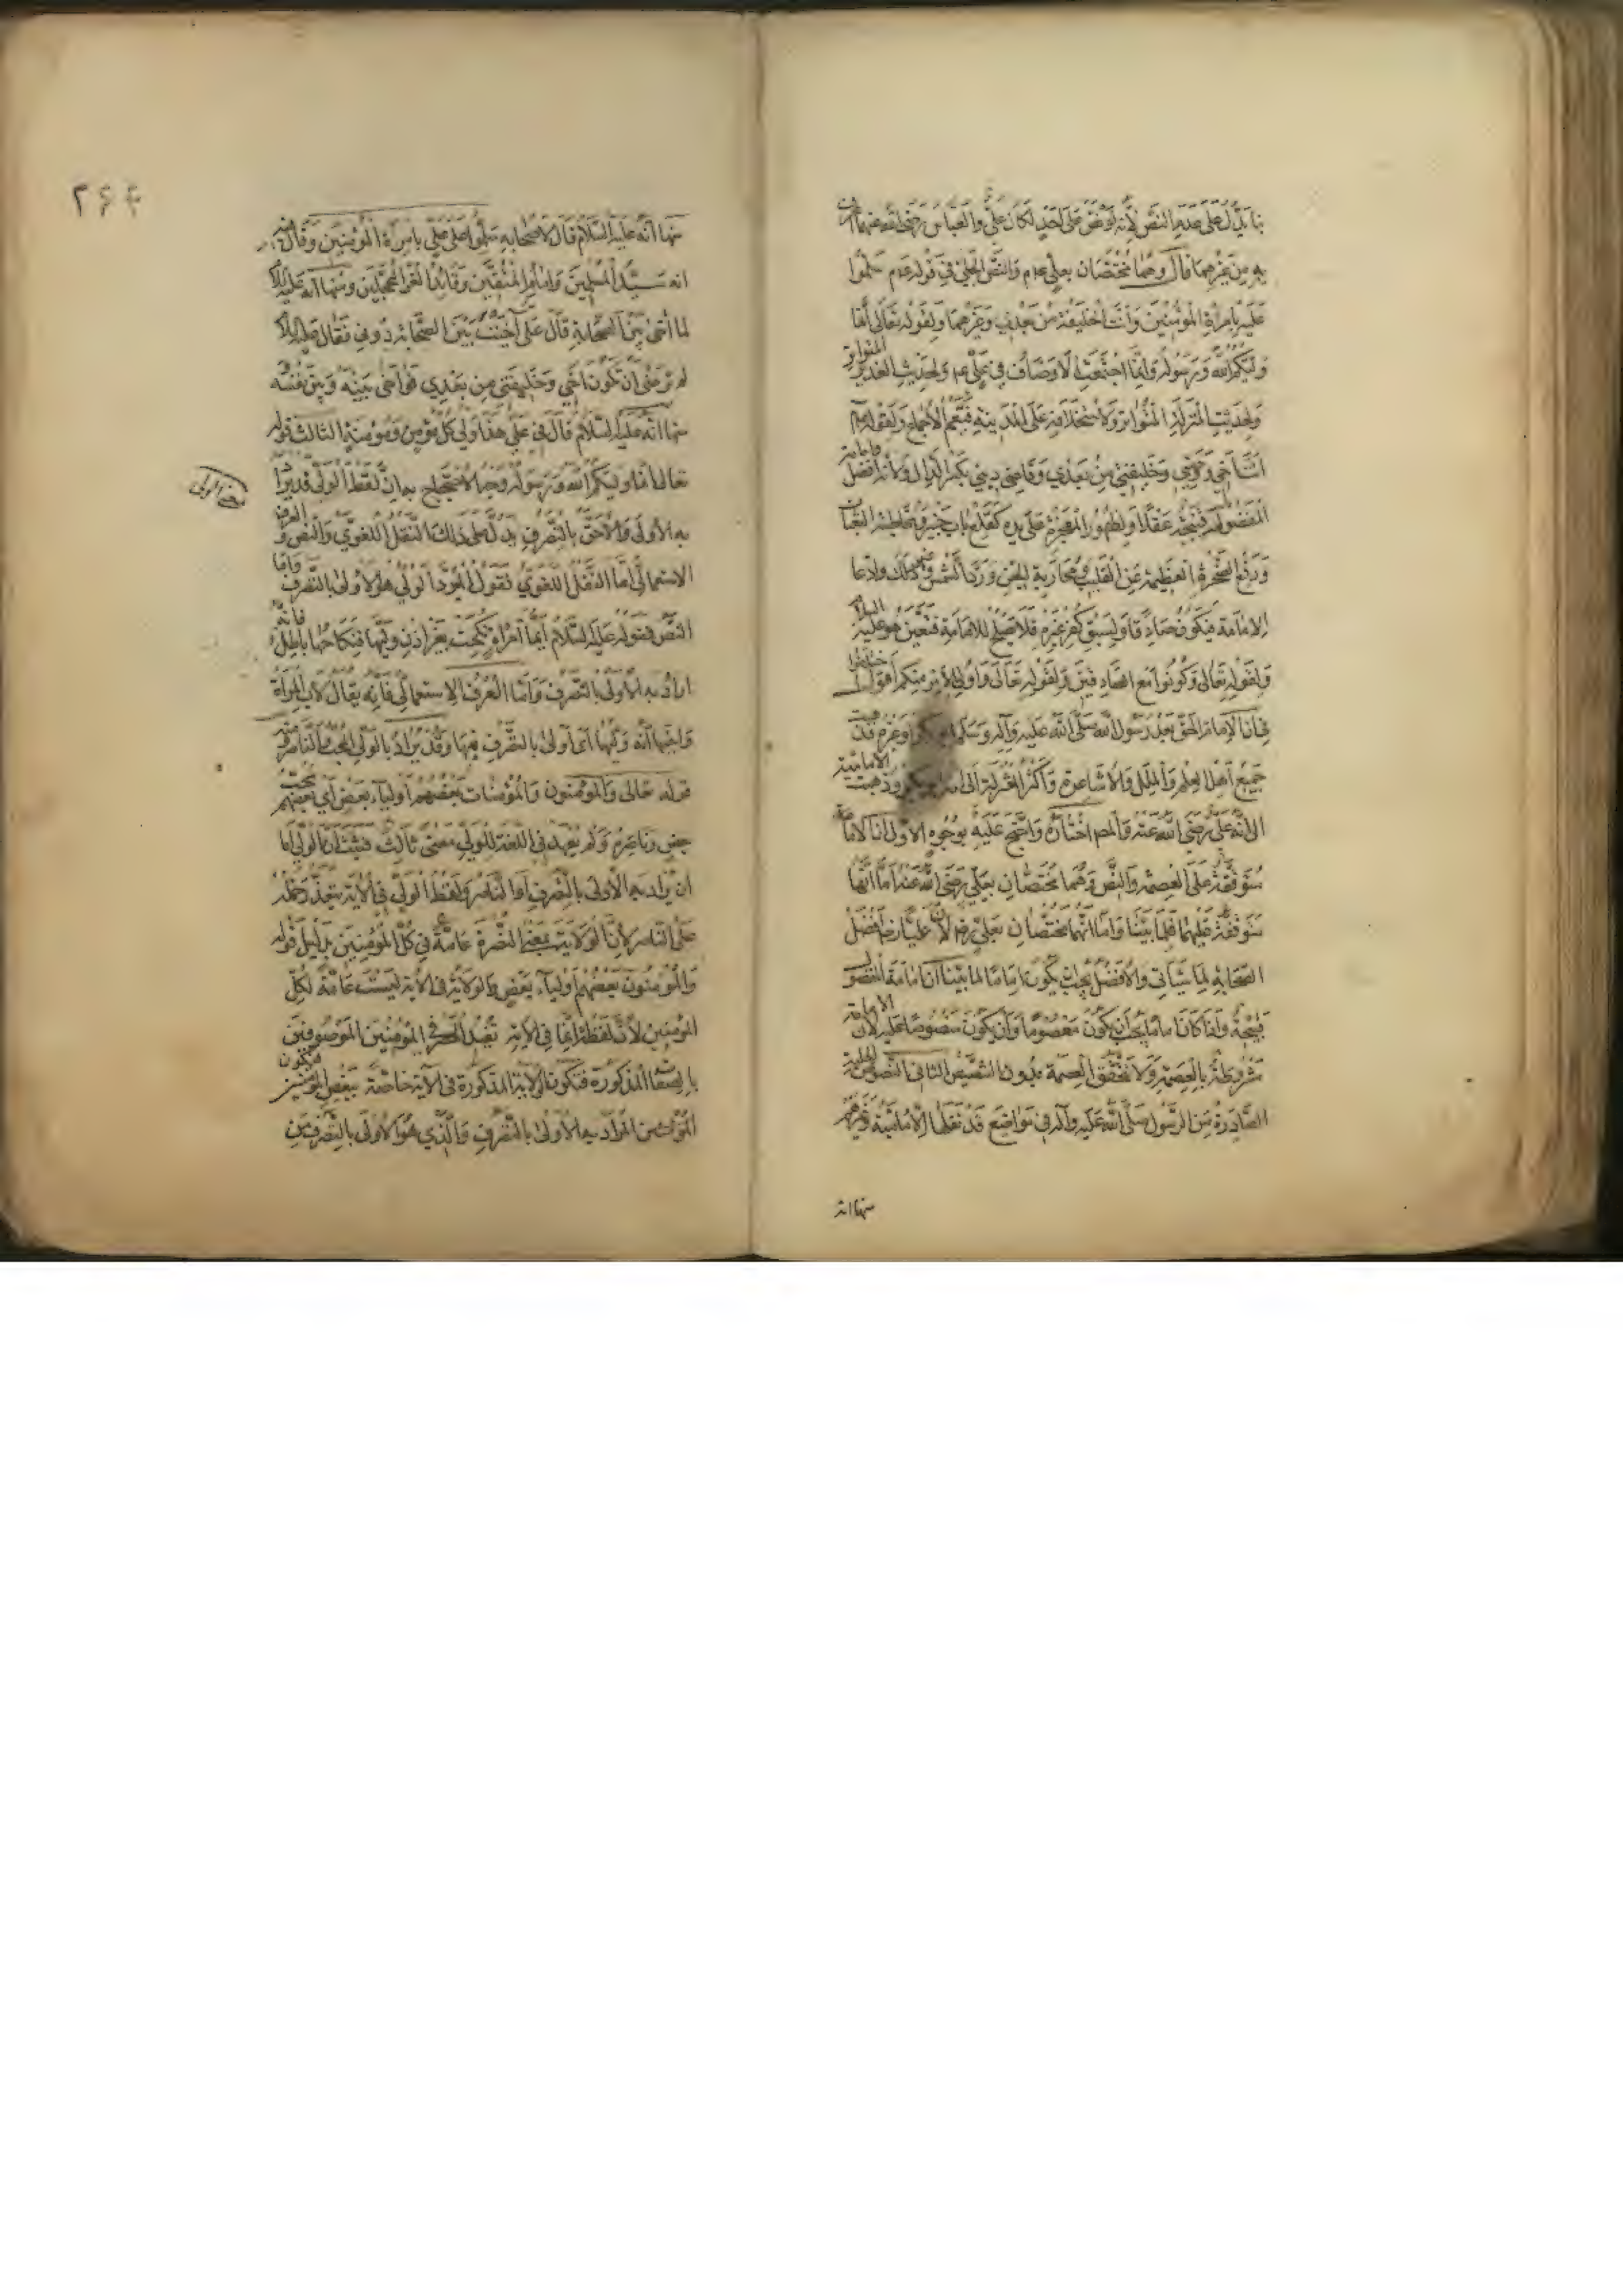 يدل على عدم النص لأنه لو نص على احد لكان علي والعباس رضي الله عنهما اعرف
به من غيرهما قال وهما مختصان بعلي عم والنص الجلي في قوله عم سلموا
عليه بامرة المؤمنين وانت الخليفة من بعدي وغيرهما ولقوله تعالى انما
وليكم الله ورسوله وانما اجتمعت الاوصاف في علي عم ولحديث الغدير المتواتر
ولحديث المنزلة المتواتر ولاستخلافه على المدينة فيعم للاجماع ولقوله عم
انت اخي ووصيي وخليفتي من بعدي وقاضي ديني بكسر الدال ولانه افضل فامامة
المفضول قبيحة عقلا ولظهور المعجزة على يده كقلع باب خيبر ومخاطبة الثعبان
ورفع الصخرة العظيمة عن القليب ومحاربة الجن ورد الشمس وغير ذلك وادعا
الامامة فيكون صادقا ولسبق كفر غيره فلا يصلح للامامة فتعين هو عليه السلام
ولقوله تعالى وكونوا مع الصادقين ولقوله تعالى واولي الامر منكم اقول اختلفوا
في ان الامام الحق بعد رسول الله صلى الله عليه وآله وسلم ابو بكر او غيره فذهبت
جميع اهل العلم والملل والاشاعرة واكثر المعتزلة الى انه ابو بكر وذهبت الامامية
الى انه علي رضي الله عنه والمص اختاره واحتج عليه بوجوه الاول ان الامامة
متوقفة على العصمة والنص وهما مختصان بعلي رضي الله عنه اما انها
متوقفة عليهما فلما بينا واما انهما مختصان بعلي رض فلان عليا رض افضل
الصحابة لما سياتي والافضل يجب ان يكون اماما لما بينا ان امامة المفضول
قبيحة واذا كان اماما يجب ان يكون معصوما وان يكون منصوصا عليه لان الامامة
مشروطة بالعصمة ولا تتحقق العصمة بدون التنصيص الثاني النصوص الجلية
الصادرة من الرسول صلى الله عليه وآله في مواضع قد نقلها الامامية وغيرهم
منها انه
۲۶۴
منها انه عليه السلام قال لاصحابه سلموا على علي بامرة المؤمنين وقال فيه
انه سيد المسلمين وامام المتقين وقائد الغر المحجلين ومنها انه عليه السلام
لما آخى بين الصحابة قال علي آخيت بين الصحابة دوني فقال عليه السلام
الم ترض ان تكون اخي وخليفتي من بعدي فواخى بينه وبين نفسه
منها انه عليه السلام قال في علي هذا ولي كل مؤمن ومؤمنة الثالث قوله
تعالى انما وليكم الله ورسوله وجه الاحتجاج به ان لفظ الولي قد يراد
معنى الولي
به الاولى والاحق بالتصرف يدل على ذلك النقل اللغوي والنص والعرف
الاستعمالي اما النقل اللغوي فقول المبرد الولي هو الاولى بالتصرف واما
النص فقوله عليه السلام ايما امراة نكحت بغير اذن وليها فنكاحها باطل فانه
اراد به الاولى بالتصرف واما العرف الاستعمالي فانه يقال لاب المراة
واخيها انه وليها اي اولى بالتصرف فيها وقد يراد بالولي المحب والناصر منه
قوله تعالى والمؤمنون والمؤمنات بعضهم اولياء بعض اي بعضهم محب
بعض وناصره ولم يعهد في اللغة للولي معنى ثالث فثبت ان الولي اما
ان يراد به الاولى بالتصرف او الناصر ولفظ الولي في الآية يتعذر حمله
على الناصر لان الولاية بمعنى النصرة عامة في كل المؤمنين بدليل قوله
والمؤمنون بعضهم اولياء بعض والولاية في الآية ليست عامة لكل
المؤمنين لان لفظة انما في الآية تفيد الحصر في المؤمنين الموصوفين
بالصفة المذكورة فتكون الولاية المذكورة في الآية خاصة ببعض المؤمنين فيكون
المراد به الاولى بالتصرف والذي هو الاولى بالتصرف من